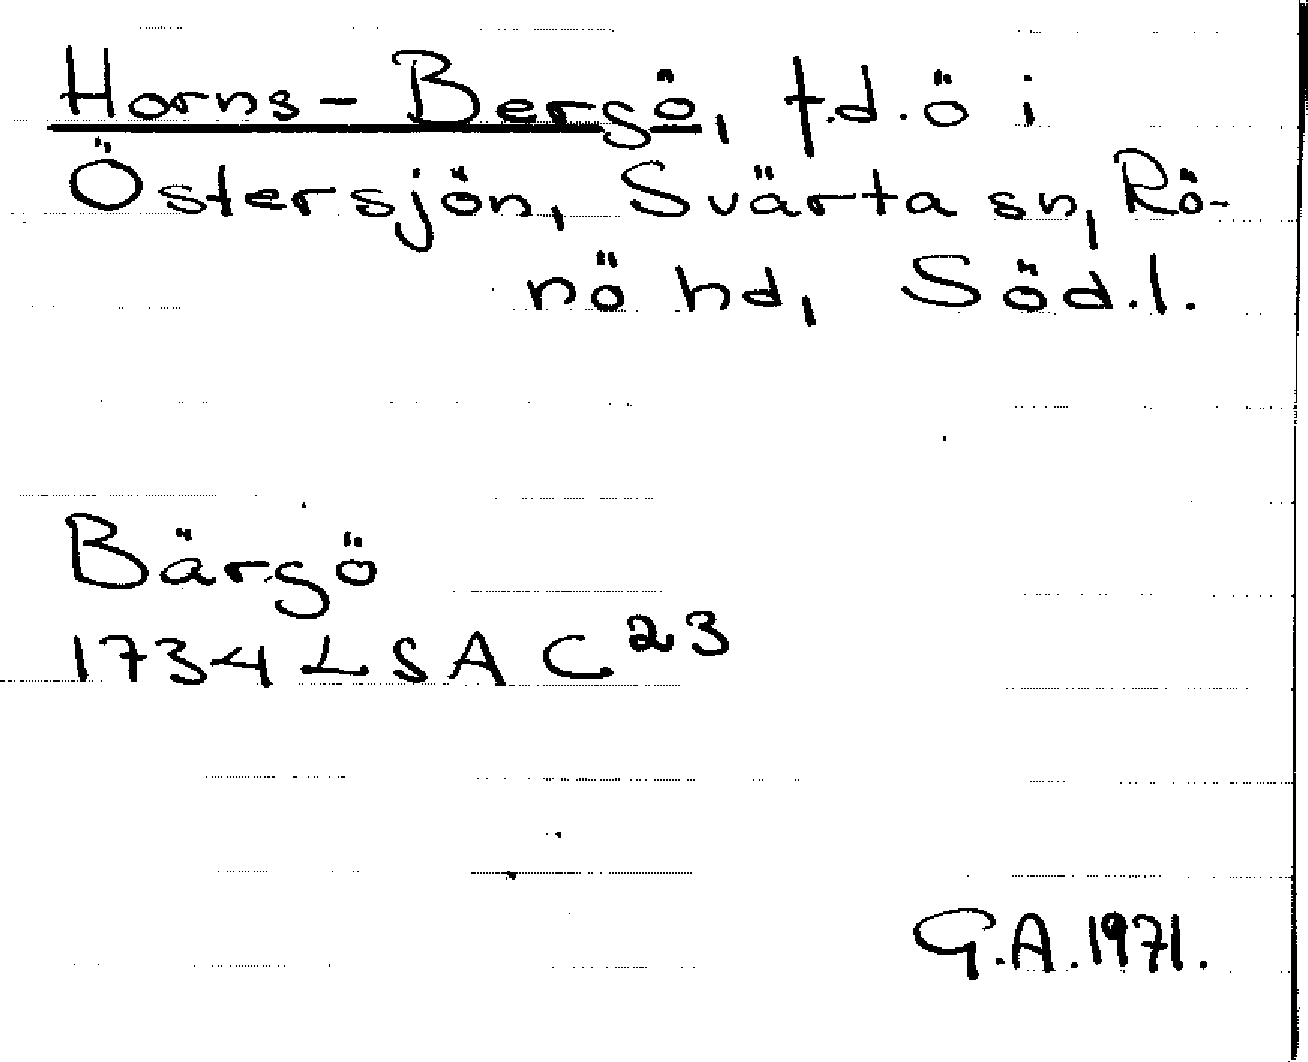 Horns-Bergö, f.d. ö i
Östersjön, Svärta sn, Rö-
nö hd, Söd.l.
Bärgö
1734 LSA C23
G.A. 1971.